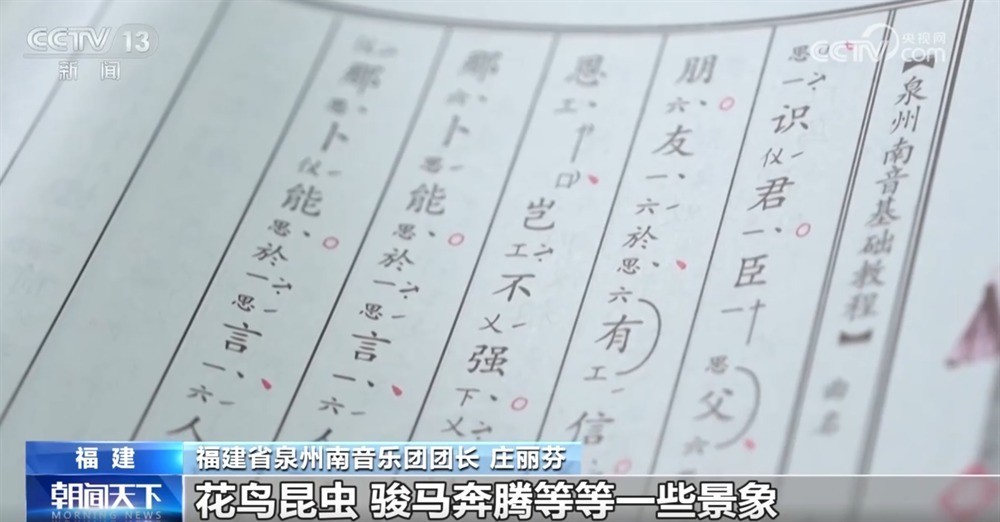 CCTV 13
新闻
央视网
CCTV.com
【泉州南音基础教程】
思一识仪君一臣一思父六
朋六友一六於思六有工信
恩工岂工不㐅强下㐅
那六卜思能思於一思言一六人
那思卜仪能思於一思言一六人
福建
福建省泉州南音乐团团长 庄丽芬
朝闻天下
MORNING NEWS
花鸟昆虫 骏马奔腾等等一些景象